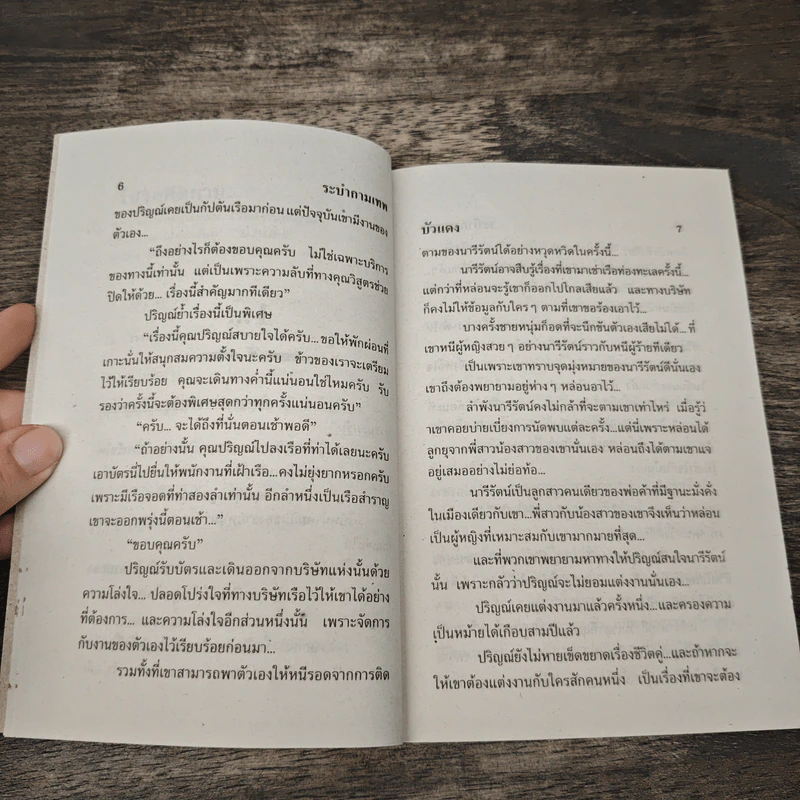 6
ระบำกามเทพ
ของปริญณ์เคยเป็นกัปตันเรือมาก่อน แต่ปัจจุบันเข้ามีงานของ
ตัวเอง...
“ถึงอย่างไรก็ต้องขอบคุณครับ ไม่ใช่เฉพาะบริการ
ของทางนี้เท่านั้น แต่เป็นเพราะความลับที่ทางคุณวิสูตรช่วย
ปิดให้ด้วย... เรื่องนี้สำคัญมากทีเดียว”
ปริญณ์ย้ำเรื่องนี้เป็นพิเศษ
“เรื่องนี้คุณปริญณ์สบายใจได้ครับ...ขอให้พักผ่อนที่
เกาะนั่นให้สนุกสมความตั้งใจนะครับ ข้าวของเราจะเตรียม
ไว้ให้เรียบร้อย คุณจะเดินทางค่ำนี้แน่นอนใช่ไหมครับ รับ
รองว่าครั้งนี้จะต้องพิเศษสุดกว่าทุกครั้งแน่นอนครับ”
“ครับ... จะได้ถึงที่นั่นตอนเช้าพอดี”
“ถ้าอย่างนั้น คุณปริญณ์ไปลงเรือที่ท่าได้เลยนะครับ
เอาบัตรนี้ไปยื่นให้พนักงานที่เฝ้าเรือ...คงไม่ยุ่งยากหรอกครับ
เพราะมีเรือจอดที่ท่าสองลำเท่านั้น อีกลำหนึ่งเป็นเรือสำราญ
เขาจะออกพรุ่งนี้ตอนเช้า...”
“ขอบคุณครับ”
ปริญณ์รับบัตรและเดินออกจากบริษัทแห่งนั้นด้วย
ความโล่งใจ... ปลอดโปร่งใจที่ทางบริษัทเรือไว้ให้เขาได้อย่าง
ที่ต้องการ... และความโล่งใจอีกส่วนหนึ่งนั้น เพราะจัดการ
กับงานของตัวเองไว้เรียบร้อยก่อนมา...
รวมทั้งที่เขาสามารถพาตัวเองให้หนีรอดจากการติด
บัวแดง
7
ตามของนารีรัตน์ได้อย่างหวุดหวิดในครั้งนี้...
นารีรัตน์อาจสืบรู้เรื่องที่เขามาเช่าเรือท่องทะเลครั้งนี้...
แต่กว่าที่หล่อนจะรู้เขาก็ออกไปไกลเสียแล้ว และทางบริษัท
ก็คงไม่ให้ข้อมูลกับใคร ๆ ตามที่เขาขอร้องเอาไว้...
บางครั้งชายหนุ่มก็อดที่จะนึกขันตัวเองเสียไม่ได้...ที่
เขาหนีผู้หญิงสวย ๆ อย่างนารีรัตน์ราวกับหนีผู้ร้ายทีเดียว
เป็นเพราะเขาทราบจุดมุ่งหมายของนารีรัตน์ดีนั่นเอง
เขาถึงต้องพยายามอยู่ห่าง ๆ หล่อนเอาไว้...
ลำพังนารีรัตน์คงไม่กล้าที่จะตามเขาเท่าไหร่ เมื่อรู้ว่า
เขาคอยบ่ายเบี่ยงการนัดพบแต่ละครั้ง...แต่นี่เพราะหล่อนได้
ลูกยุจากพี่สาวน้องสาวของเขานั่นเอง หล่อนถึงได้ตามเขาแจ
อยู่เสมออย่างไม่ย่อท้อ...
นารีรัตน์เป็นลูกสาวคนเดียวของพ่อค้าที่มีฐานะมั่งคั่ง
ในเมืองเดียวกับเขา...พี่สาวกับน้องสาวของเขาจึงเห็นว่าหล่อน
เป็นผู้หญิงที่เหมาะสมกับเขามากมายที่สุด...
และที่พวกเขาพยายามหาทางให้ปริญณ์สนใจนารีรัตน์
นั้น เพราะกลัวว่าปริญณ์จะไม่ยอมแต่งงานนั่นเอง...
ปริญณ์เคยแต่งงานมาแล้วครั้งหนึ่ง...และครองความ
เป็นหม้ายได้เกือบสามปีแล้ว
ปริญณ์ยังไม่หายเข็ดขยาดเรื่องชีวิตคู่...และถ้าหากจะ
ให้เขาต้องแต่งงานกับใครสักคนหนึ่ง เป็นเรื่องที่เขาจะต้อง